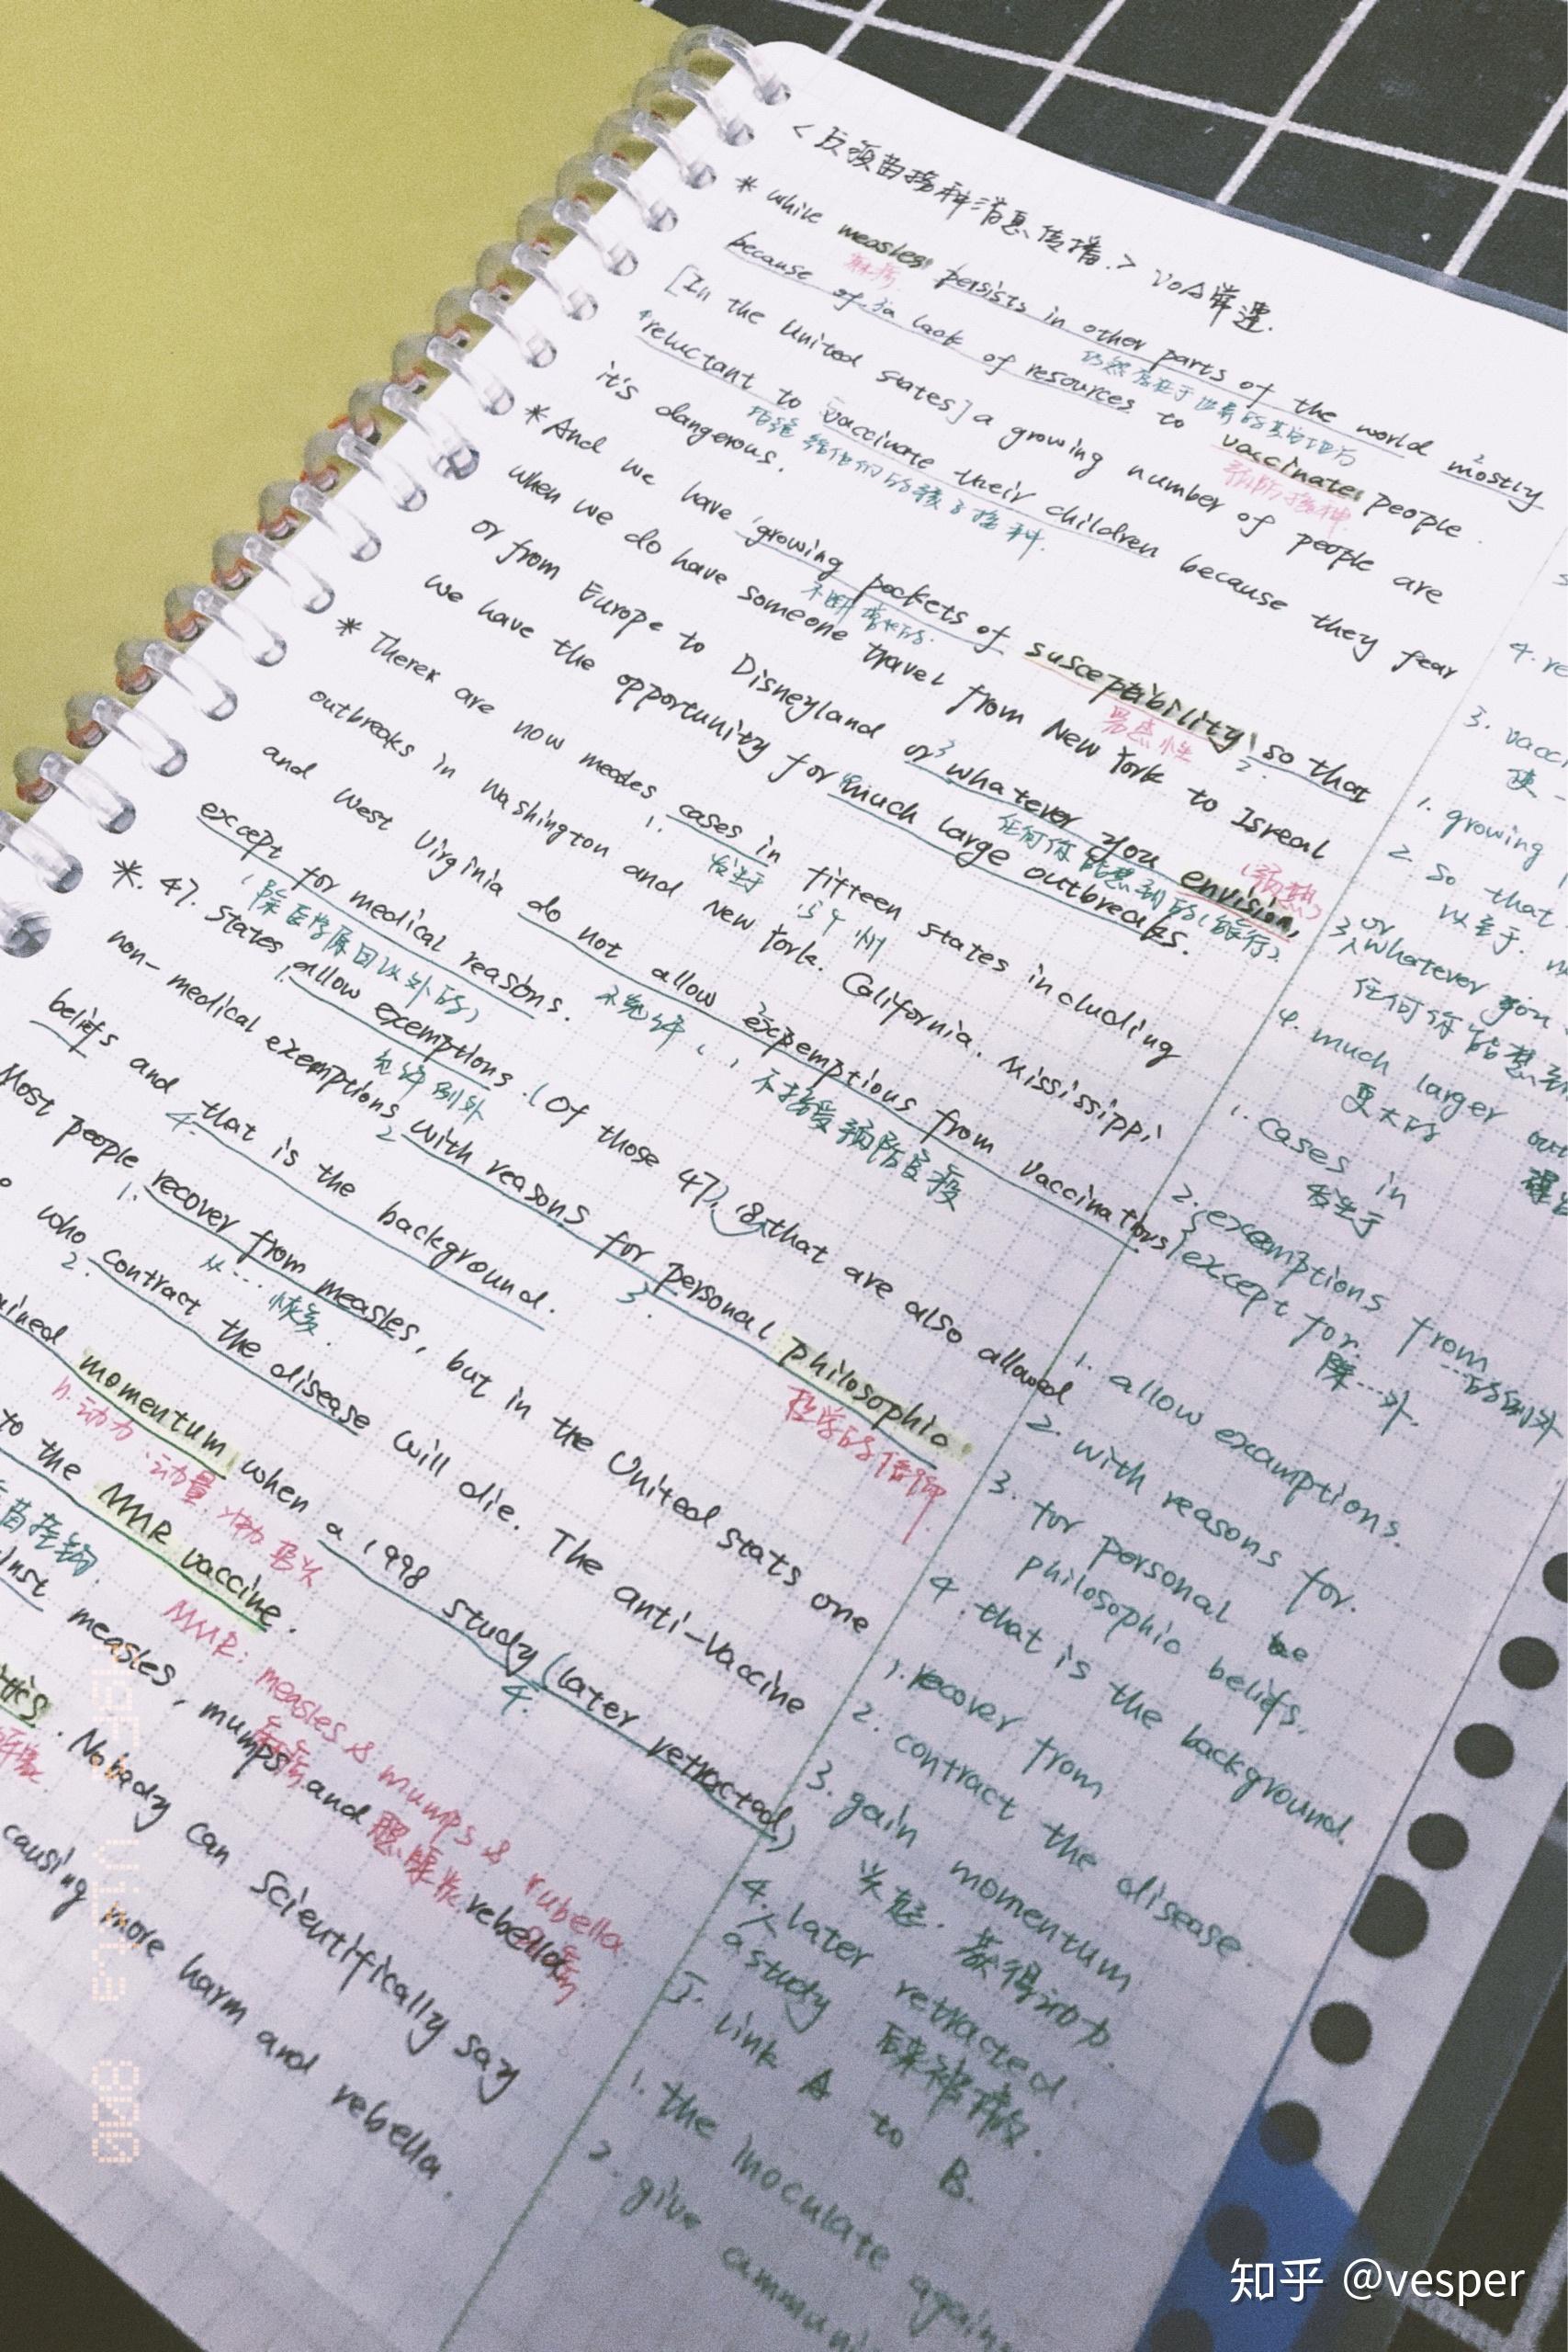 <反预苗接种消息传播.> VOA常速.
* while measles persists in other parts of the world mostly
麻疹
仍然存在于世界的其的地方
because of a lack of resources to vaccinate people.
预防接种
[In the United states] a growing number of people are
reluctant to vaccinate their children because they fear
拒绝给他们的孩子接种.
it's dangerous.
* And we have growing pockets of susceptibility so that
不断增长的.
易感性
when we do have someone travel from New York to Isreal
or from Europe to Disneyland or whatever you envision,
任何你能想到的(旅行)
(预想)
we have the opportunity for much large outbreaks.
* There are now meades cases in fifteen states including
发生于
15个州
outbreaks in washington and New York. California. Mississippi
and West Virginia do not allow expemptions from vaccinations
不允许
不接受预防免疫
except for medical reasons.
(除医学原因以外的)
*. 47. states allow exemptions. (Of those 47). 18 that are also allowed
允许例外
non-medical exemptions with reasons for personal philosophio
哲学的信仰
beliefs and that is the background.
Most people recover from measles, but in the United stats one
从....恢复.
who contract the disease will die. The anti-vaccine
momentum when a 1998 study (later retracted)
n.动力.动量.
to the MMR vaccine.
MMR: measles & mumps & rubella
苗挂钩.
measles, mumps and rebella
麻疹
. Nobody can scientifically say
causing more harm and rebella.
4. re
3. vacci
1. growing
2. so that
以至于.
3. or whatever you
任何你能想到
4. much larger out
更大的
1. cases in
发生于
2. exemptions from
....的例外
except for.
除....外.
1. allow examptions.
2. with reasons for.
3. for personal be
philosophio beliefs.
4. that is the background.
1. recover from
2. contract the disease.
3. gain momentum
兴起. 获得动力.
4. later retracted.
a study
后来被撤.
5. Link A to B.
1. the inoculate again
2. give ammuni
知乎 @vesper